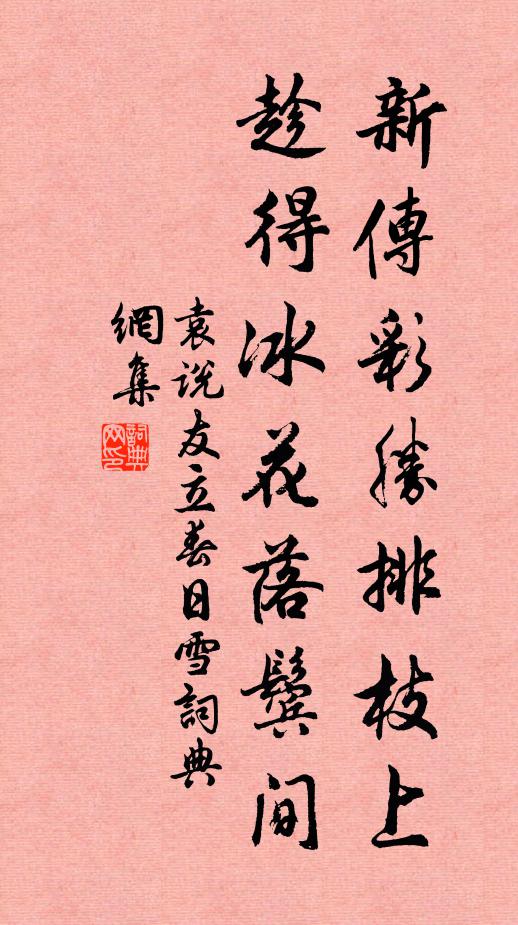 新傳彩勝排枝上
趁得冰花落鬢間
袁說友立春日雪詞典
網集
詞典網印